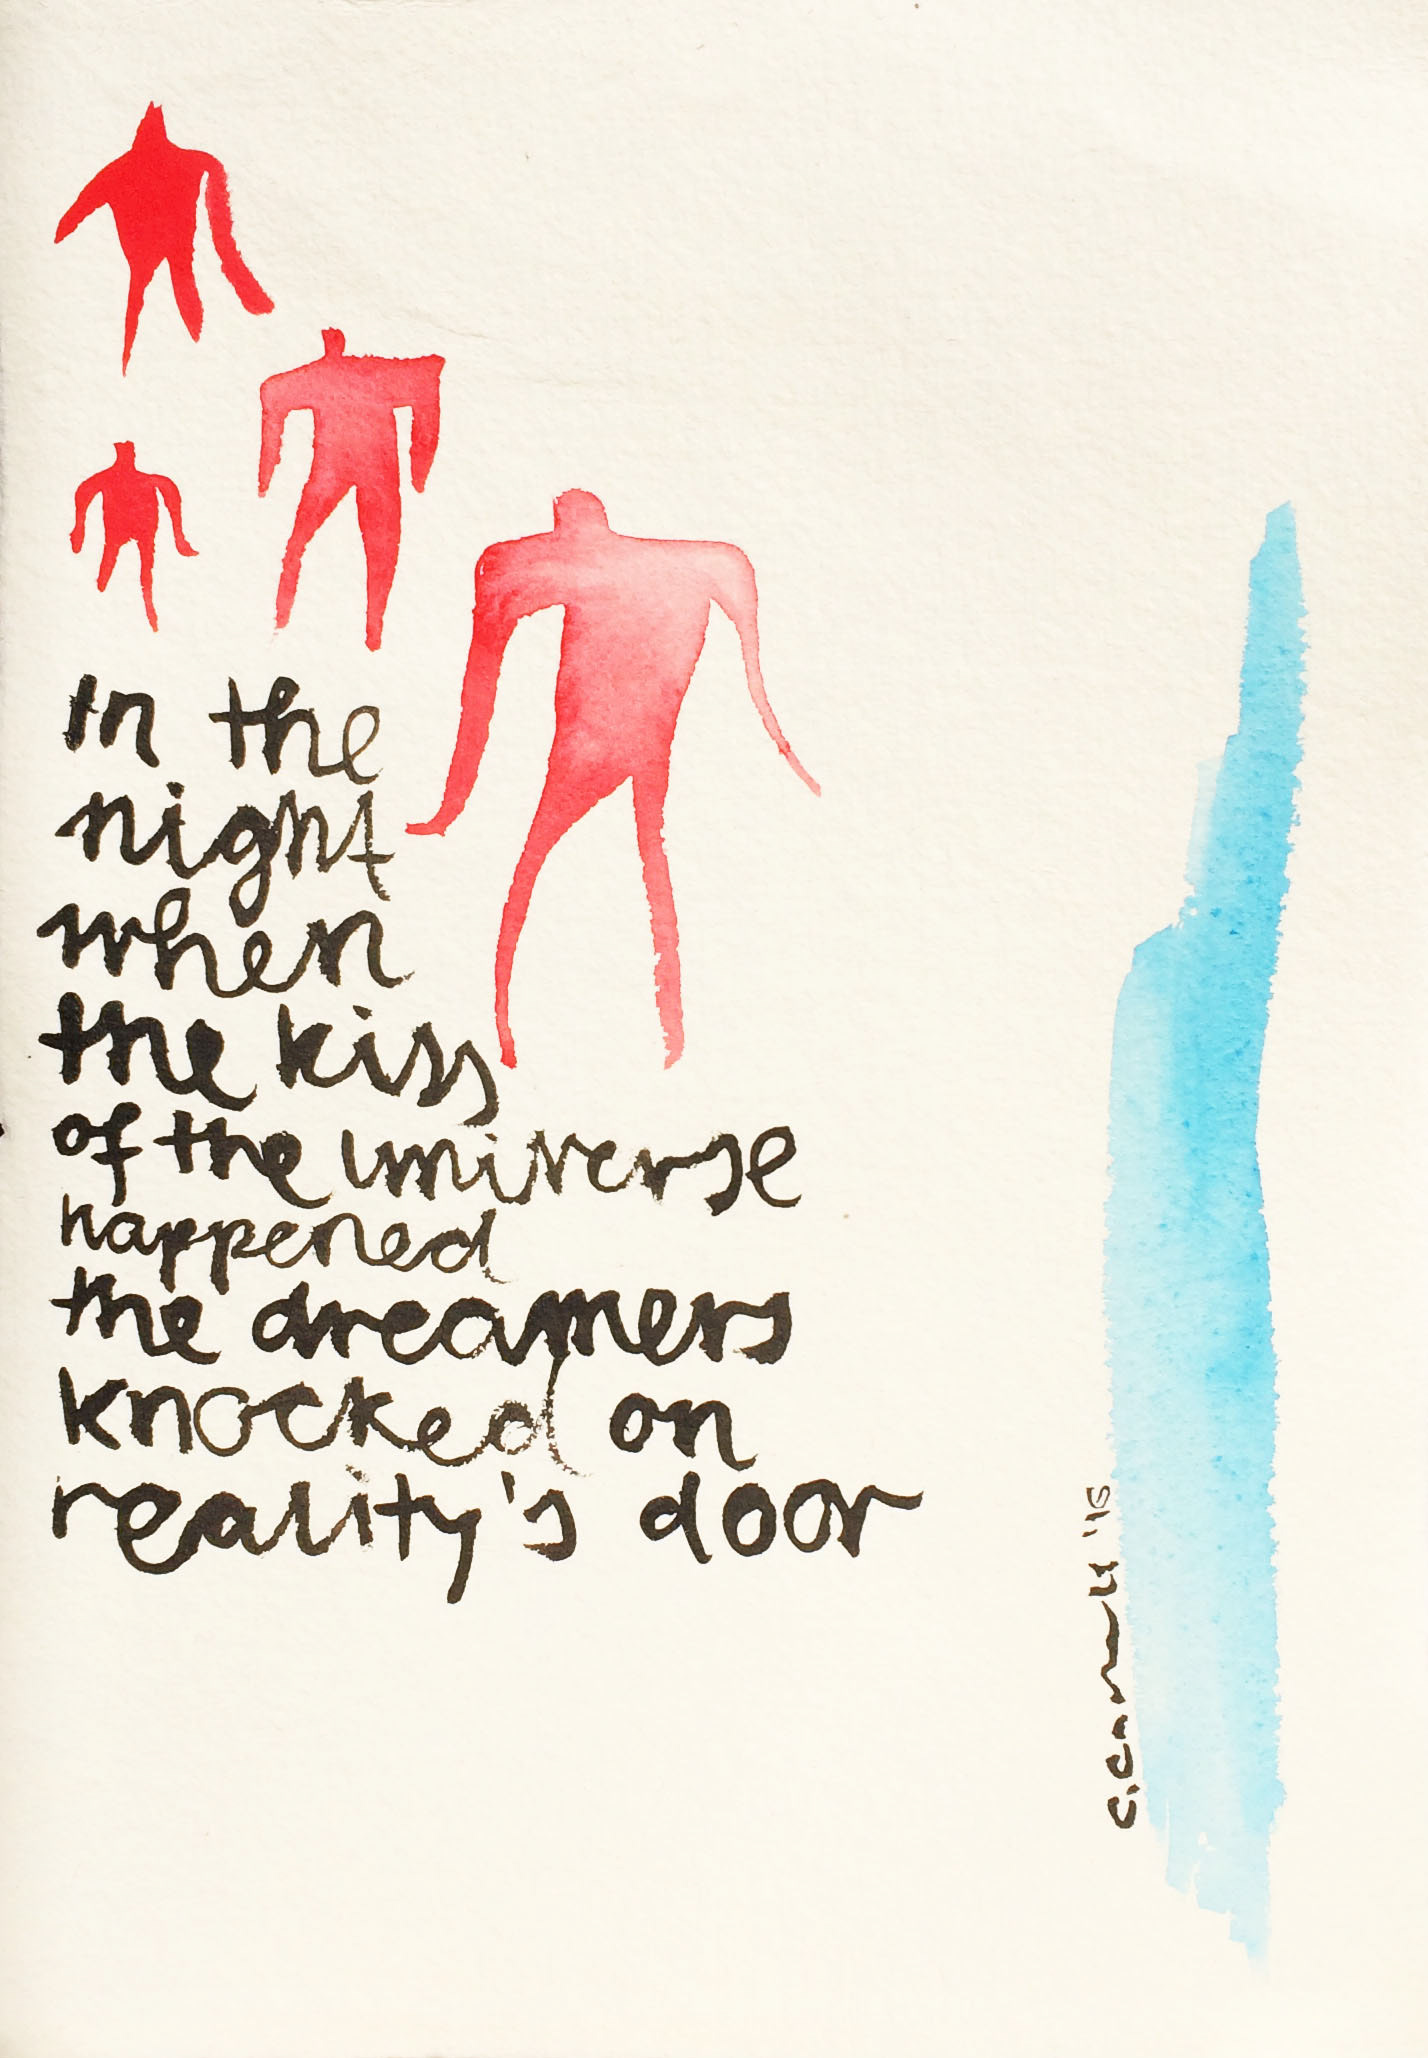 In the
night
when
the kiss
of the universe
happened
the dreamers
knocked on
reality's door
'15